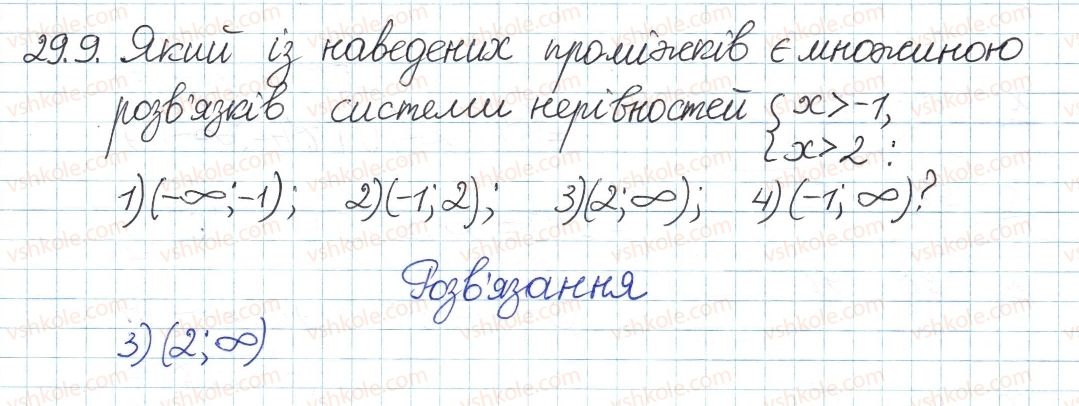 29.9. Який із наведених проміжків є множиною
розв'язків системи нерівностей { x > -1,
{ x > 2 :
1) (-∞; -1); 2) (-1; 2); 3) (2; ∞); 4) (-1; ∞)?
Розв'язання
3) (2; ∞)